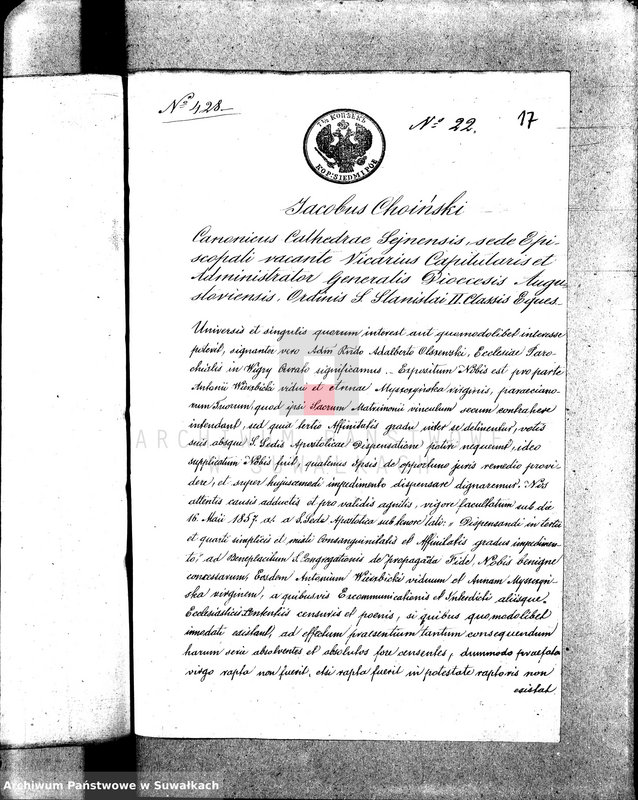 Nº 428
Nº 22.
17
7½ КОПѢЕКЪ
KOP: SIEDM I PÓŁ
Jacobus Choiński
Canonicus Cathedrae Sejnensis, sede Epi-
scopali vacante Vicarius Capitularis et
Administrator Generalis Dioecesis Augu-
stoviensis, Ordinis S Stanislai II. Classis Eques
Universis et singulis quorum interest aut quomodolibet interesse
poterit, signanter vero Adm Rndo Adalberto Olszenski, Ecclesiae Paro-
chialis in Wigry Curato significamus. Expositum Nobis est pro parte
Antonii Wierzbicki vidui et Annae Myszczyńska virginis, paraeciano-
rum Tuorum, quod ipsi Sacrum Matrimonii vinculum secum contrahere
intendant, sed quia tertio Affinitatis gradu inter se detinentur, votis
suis absque S. Sedis Apostolicae Dispensatione potiri nequeunt, ideo
supplicatum Nobis fuit, quatenus ipsis de opportuno juris remedio provi-
dere, et super hujuscemodi impedimento dispensare dignaremur. Nos
attentis causis adductis et pro validis agnitis, vigore facultatum sub die
16. Maii 1857 a. a S. Sede Apostolica sub tenore lati: „Dispensandi in tertio
et quarto simplici et mixti Consanguinitatis et Affinitatis gradus impedimen-
to," ad Beneplacitum S. Congregationis de propaganda Fide, Nobis benigne
concessarum, Eosdem Antonium Wierzbicki viduum et Annam Myszczyń-
ska virginem, a quibusvis Excommunicationis et Interdicti, aliisque
Ecclesiasticis Sententiis censuris et poenis, si quibus quomodolibet
innodati existant, ad effectum praesentium tantum consequendum
harum serie absolventes et absolutos fore censentes, dummodo praefata
virgo rapta non fuerit, etsi rapta fuerit in potestate raptoris non
existat
ARCHIWUM PAŃSTWOWE
W SUWAŁKACH
Archiwum Państwowe w Suwałkach